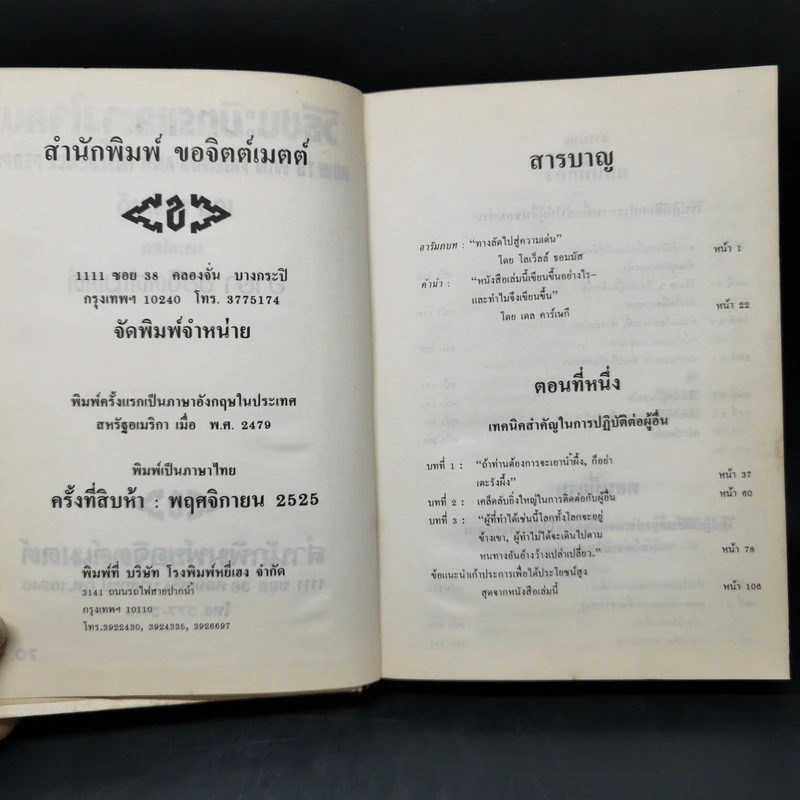 สำนักพิมพ์ ขอจิตต์เมตต์
1111 ซอย 38 คลองจั่น บางกะปิ
กรุงเทพฯ 10240 โทร. 3775174
จัดพิมพ์จำหน่าย
พิมพ์ครั้งแรกเป็นภาษาอังกฤษในประเทศ
สหรัฐอเมริกา เมื่อ พ.ศ. 2479
พิมพ์เป็นภาษาไทย
ครั้งที่สิบห้า : พฤศจิกายน 2525
พิมพ์ที่ บริษัท โรงพิมพ์หยี่เฮง จำกัด
3141 ถนนรถไฟสายปากน้ำ
กรุงเทพฯ 10110
โทร.3922430, 3924335, 3926697
สารบาญ
อารัมภบท : "ทางลัดไปสู่ความเด่น"
โดย โลเว็ลล์ ธอมมัส หน้า 1
คำนำ : "หนังสือเล่มนี้เขียนขึ้นอย่างไร-
และทำไมจึงเขียนขึ้น"
โดย เดล คาร์เนกี หน้า 22
ตอนที่หนึ่ง
เทคนิคสำคัญในการปฏิบัติต่อผู้อื่น
บทที่ 1 : "ถ้าท่านต้องการจะเอาน้ำผึ้ง, ก็อย่า
เตะรังผึ้ง" หน้า 37
บทที่ 2 : เคล็ดลับยิ่งใหญ่ในการติดต่อกับผู้อื่น หน้า 60
บทที่ 3 : "ผู้ที่ทำได้เช่นนี้โลกทั้งโลกจะอยู่
ข้างเขา, ผู้ทำไม่ได้จะเดินไปตาม
หนทางอันอ้างว้างเปล่าเปลี่ยว." หน้า 78
ข้อแนะนำเก้าประการเพื่อได้ประโยชน์สูง
สุดจากหนังสือเล่มนี้ หน้า 106